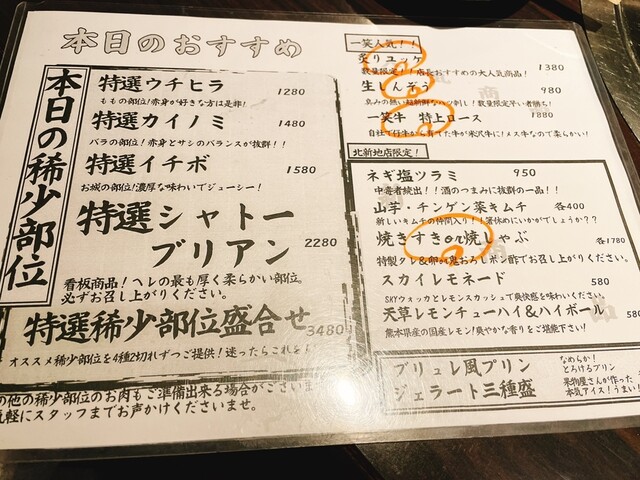 本日のおすすめ
本日の稀少部位
特選ウチヒラ 1280
ももの部位!赤身が好きな方は是非!
特選カイノミ 1480
バラの部位!赤身とサシのバランスが抜群!!
特選イチボ 1580
お城の部位!濃厚な味わいでジューシー!
特選シャトー
ブリアン 2280
看板商品!ヘレの最も厚く柔らかい部位。
必ずお召し上がりください。
特選稀少部位盛合せ 3480
オススメ稀少部位を4種2切れずつご提供!迷ったらこれを!
の他の稀少部位のお肉もご準備出来る場合がござい
気軽にスタッフまでお声かけくださいませ。
一笑人気!
炙りユッケ 1380
数量限定!!店長おすすめの大人気商品!
生しんぞう 980
臭みの無い超新鮮なハツ刺し!数量限定早い者勝ち!
一笑牛 特上ロース
自社で仔牛から育てた牛が米沢牛に!メス牛なので柔らかい!
北新地店限定!
ネギ塩ツラミ 950
中毒者続出!!酒のつまみに抜群の一品!!
山芋・チンゲン菜キムチ 各400
新しいキムチの仲間入り!箸休めにいかがでしょうか??
焼きすきor焼しゃぶ 各1780
特製タレ&卵or鬼おろしポン酢でお召し上がりください。
スカイレモネード 580
SKYウォッカとレモンスカッシュで爽快感を味わいください
天草レモンチューハイ&ハイボール 580
熊本県産の国産レモン!爽やかな香りをご堪能下さい!
ブリュレ風プリン なめらか!
とろけるプリン
ジェラート三種盛 果物屋さんが作った
本気アイス!うまい!